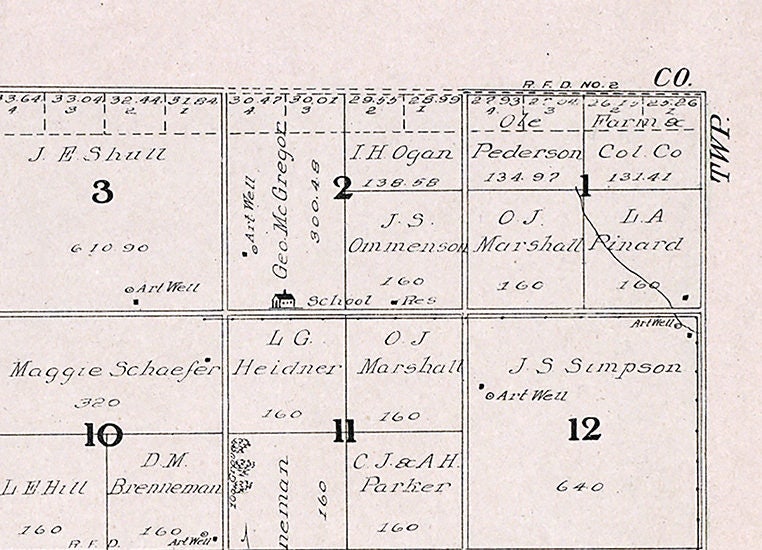 R. F. D. NO. 2
CO.
TWP.
33.04
3
32.44
2
31.84
1
30.47
4
30.01
3
29.55
2
28.99
1
27.93
4
3
2
25.26
1
J. E. Shull
3
610 90
Art Well
Geo. McGregor
300.48
Art Well
2
I. H. Ogan
138.58
Ole
Pederson
134.97
Farm &
Col. Co
131.41
1
J. S.
Ommenson
160
O J.
Marshall
160
L. A
Pinard
160
School
Res
Art Well
Maggie Schaefer
320
10
L. G.
Heidner
160
O J
Marshall
160
11
J S Simpson
Art Well
12
640
L E Hill
160
D. M.
Brenneman
160
R. F. D.
Art Well
neman
160
C. J. & A H.
Parker
160